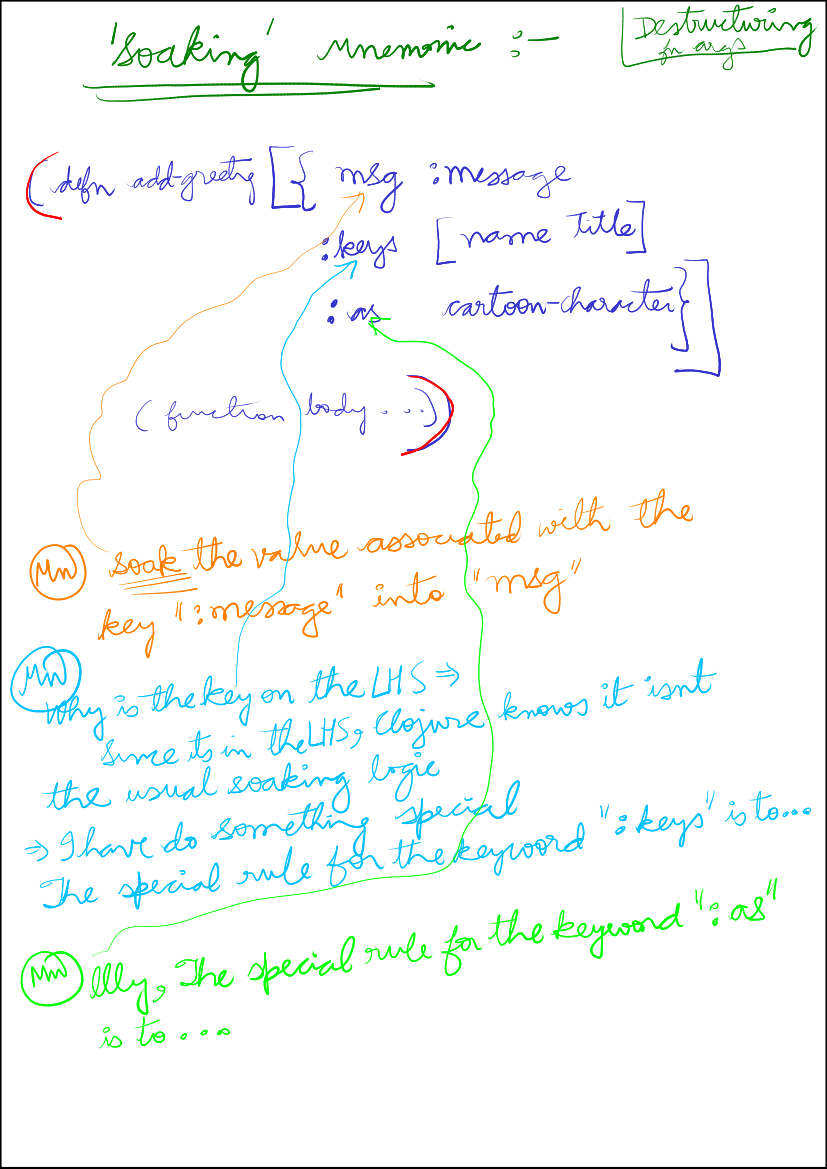 'Soaking' Mnemonic :-
Destructuring
fn args
(defn add-greeting [{ msg :message
:keys [name title]
:as cartoon-character}]
(function body ...))
Mn soak the value associated with the
key ":message" into "msg"
Mn
Why is the key on the LHS ⇒
Since its in the LHS, Clojure knows it isnt
the usual soaking logic
⇒ I have do something special
The special rule for the keyword ":keys" is to...
Mn lllly, The special rule for the keyword ":as"
is to ...